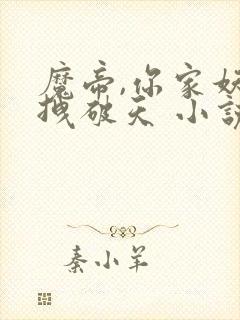 魔帝,你家
拽破天 小
秦小羊